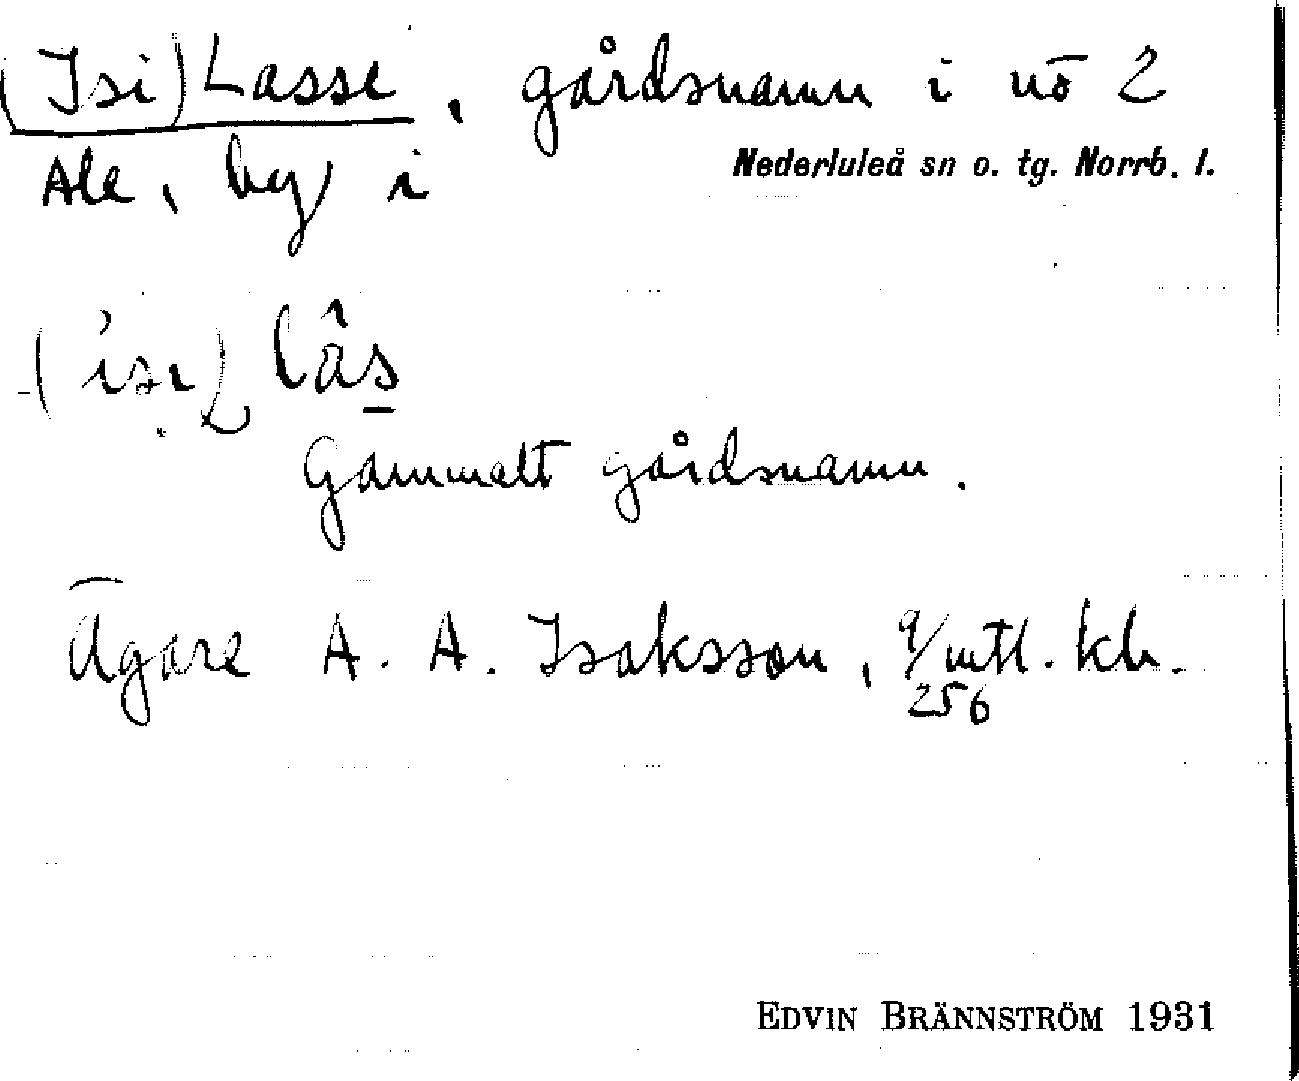 (Isi)Lasse, gårdsnamn i nō 2
Ale, by i Nederluleå sn o. tg. Norrb. l.
(ísı) lâs
Gammalt gårdsnamn.
Ägare A. A. Isaksson, 9/256 mtl. kh.
EDVIN BRÄNNSTRÖM 1931